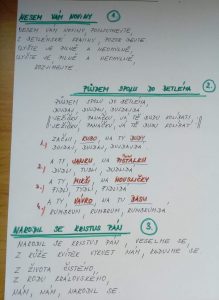 NESEM VÁM NOVINY 1.
NESEM VÁM NOVINY, POSLOUCHEJTE
Z BETLÉMSKÉ KRAJINY, POZOR DEJTE.
SLYŠTE JE PILNĚ A NEOMYLNĚ,
SLYŠTE JE PILNĚ A NEOMYLNĚ,
ROZJÍMEJTE
PŮJDEM SPOLU DO BETLÉMA 2.
PŮJDEM SPOLU DO BETLÉMA,
DUJDAJ, DUJDAJ, DUJDAJDÁ.
JEŽÍŠKU, PANÁČKU, JÁ TĚ BUDU KOLÍBATI,
JEŽÍŠKU, PANÁČKU, JÁ TĚ BUDU KOLÍBAT!
1.) ZAČNI, KUBO, NA TY DUDY
DUJDAJ, DUJDAJ, DUJDAJDÁ
2.) A TY, JANKU, NA PÍŠŤALKU
DUDLI, TUDLI, DUDLIDÁ
3.) A TY, MIKŠI, NA HOUSLIČKY
FIDLI, FIDLI, FIDLIDÁ
4.) A TY, VÁVRO, NA TU BASU
RUMBRUM, RUMBRUM, RUMBRUMDÁ
NARODIL SE KRISTUS PÁN 3.
NARODIL SE KRISTUS PÁN, VESELME SE,
Z RŮŽE KVÍTEK VYKVET NÁM, RADUJME SE.
Z ŽIVOTA ČISTÉHO,
Z RODU KRÁLOVSKÉHO
NÁM, NÁM, NARODIL SE.